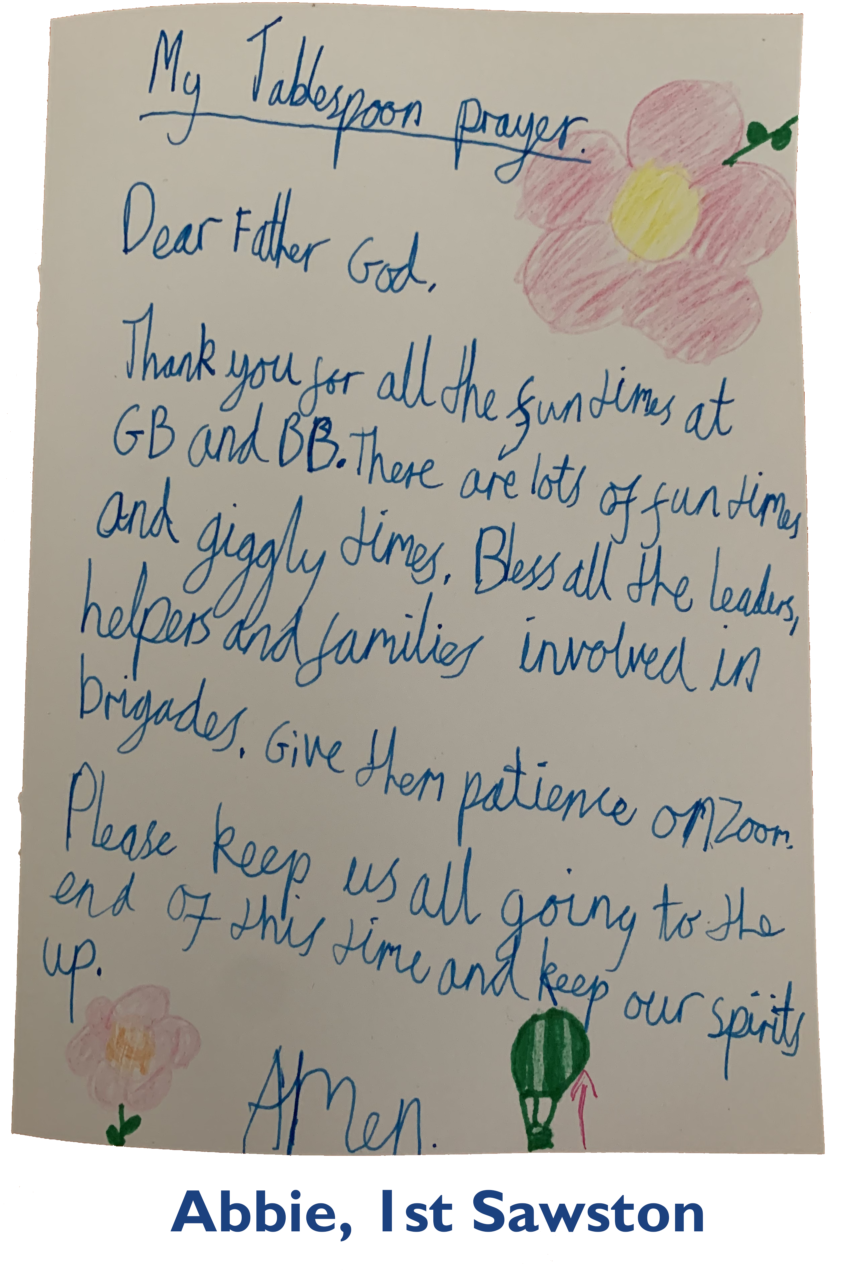 My Tablespoon prayer.
Dear Father God,
Thank you for all the fun times at
GB and BB. There are lots of fun times
and giggly times. Bless all the leaders,
helpers and families involved in
brigades. Give them patience on Zoom.
Please keep us all going to the
end of this time and keep our spirits
up.
AMen.
Abbie, 1st Sawston